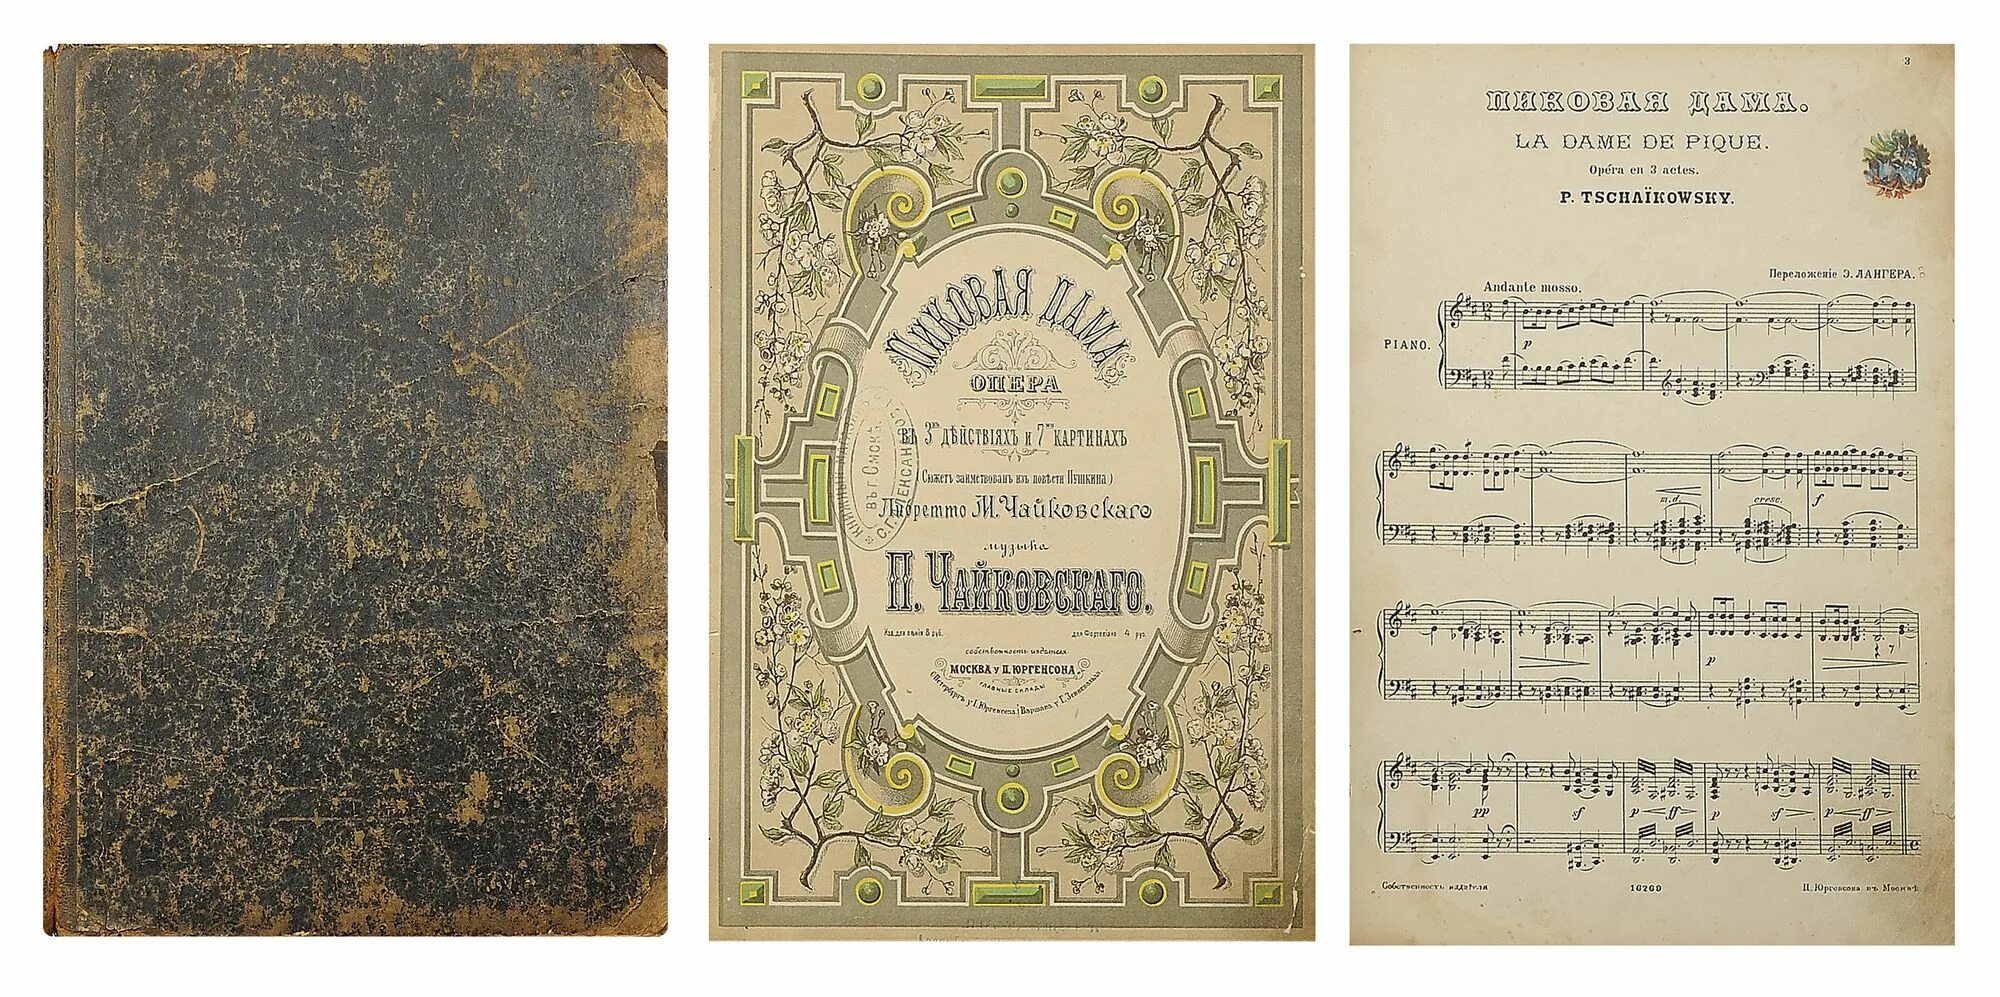 ПИКОВАЯ ДАМА
ОПЕРА
въ 3хъ ДѢЙСТВІЯХЪ и 7ми КАРТИНАХЪ
(Сюжетъ заимствованъ изъ повѣсти Пушкина)
Либретто М. Чайковскаго
музыка
П. ЧАЙКОВСКАГО.
Изд. для пѣнія 8 руб. для Фортепіано 4 руб.
собственность издателя
МОСКВА у П. ЮРГЕНСОНА
ГЛАВНЫЕ СКЛАДЫ
С.Петербургъ у І. Юргенсона | Варшава у Г. Зенневальда.
КНИЖНЫЙ
ВЪ Г. ОМСКѢ
АЛЕКСАНДРОВ
3
ПИКОВАЯ ДАМА.
LA DAME DE PIQUE.
Opéra en 3 actes.
P. TSCHAÏKOWSKY.
Переложеніе Э. ЛАНГЕРА.
Andante mosso.
PIANO.
p
m.d. cresc. f
p
pp sf p ff p sf p ff
Собственность издателя 16269 П. Юргенсона въ Москвѣ